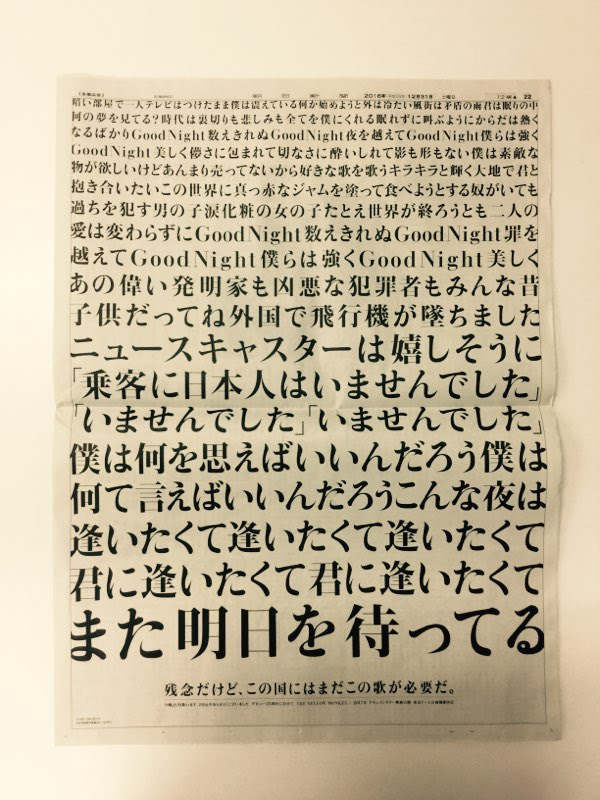 （全面広告） 2016年 12月31日 土曜日 12版▲ 22
暗い部屋で一人テレビはつけたまま僕は震えている何か始めようと外は冷たい風街は矛盾の雨君は眠りの中
何の夢を見てる?時代は裏切りも悲しみも全てを僕にくれる眠れずに叫ぶようにからだは熱く
なるばかりGoodNight数えきれぬGoodNight夜を越えてGoodNight僕らは強く
GoodNight美しく儚さに包まれて切なさに酔いしれて影も形もない僕は素敵な
物が欲しいけどあんまり売ってないから好きな歌を歌うキラキラと輝く大地で君と
抱き合いたいこの世界に真っ赤なジャムを塗って食べようとする奴がいても
過ちを犯す男の子涙化粧の女の子たとえ世界が終ろうとも二人の
愛は変わらずにGoodNight数えきれぬGoodNight罪を
越えてGoodNight僕らは強くGoodNight美しく
あの偉い発明家も凶悪な犯罪者もみんな昔
子供だってね外国で飛行機が墜ちました
ニュースキャスターは嬉しそうに
「乗客に日本人はいませんでした」
「いませんでした」「いませんでした」
僕は何を思えばいいんだろう僕は
何て言えばいいんだろうこんな夜は
逢いたくて逢いたくて逢いたくて
君に逢いたくて君に逢いたくて
また明日を待ってる
残念だけど、この国にはまだこの歌が必要だ。
2016年ありがとうございました THE YELLOW MONKEY / 2017年 ドキュメンタリー映画公開 東京ドーム公演開催決定